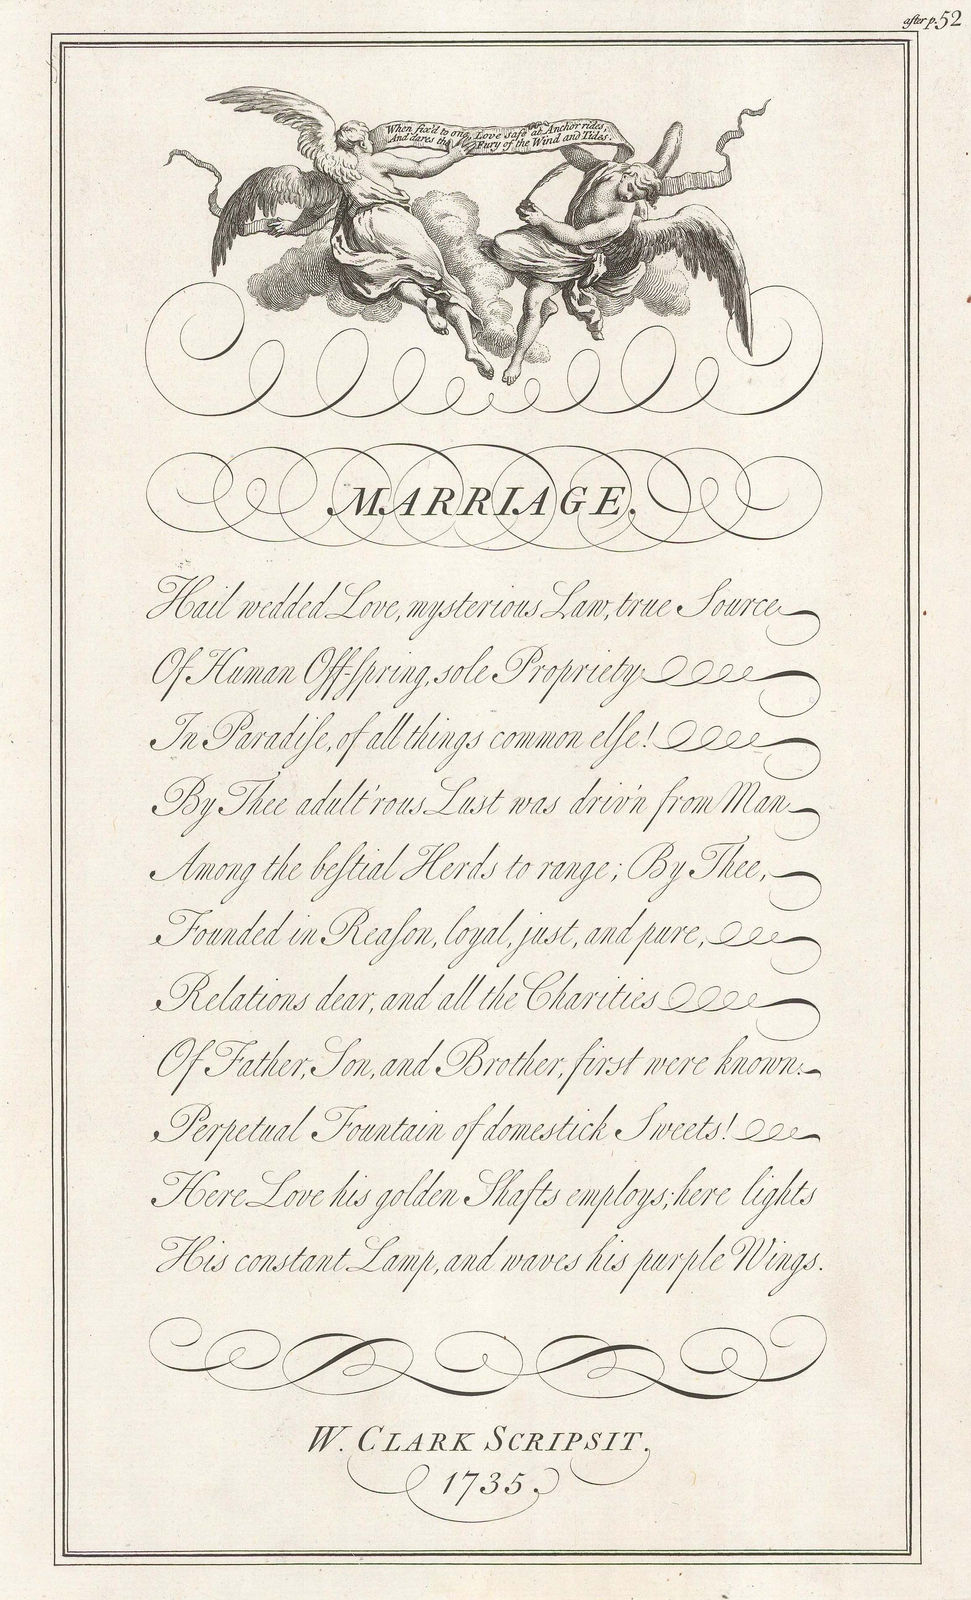 after p. 52
When fix'd to one, Love safe at Anchor rides,
And dares the Fury of the Wind and Tides.
MARRIAGE.
Hail wedded Love, mysterious Law, true Source
Of Human Off-ſpring, sole Propriety
In Paradiſe, of all things common elſe!
By Thee adult'rous Lust was driv'n from Man
Among the beſtial Herds to range; By Thee,
Founded in Reaſon, loyal, just, and pure,
Relations dear, and all the Charities
Of Father, Son, and Brother, first were known.
Perpetual Fountain of domestick Sweets!
Here Love his golden Shafts employs; here lights
His constant Lamp, and waves his purple Wings.
W. CLARK SCRIPSIT.
1735.